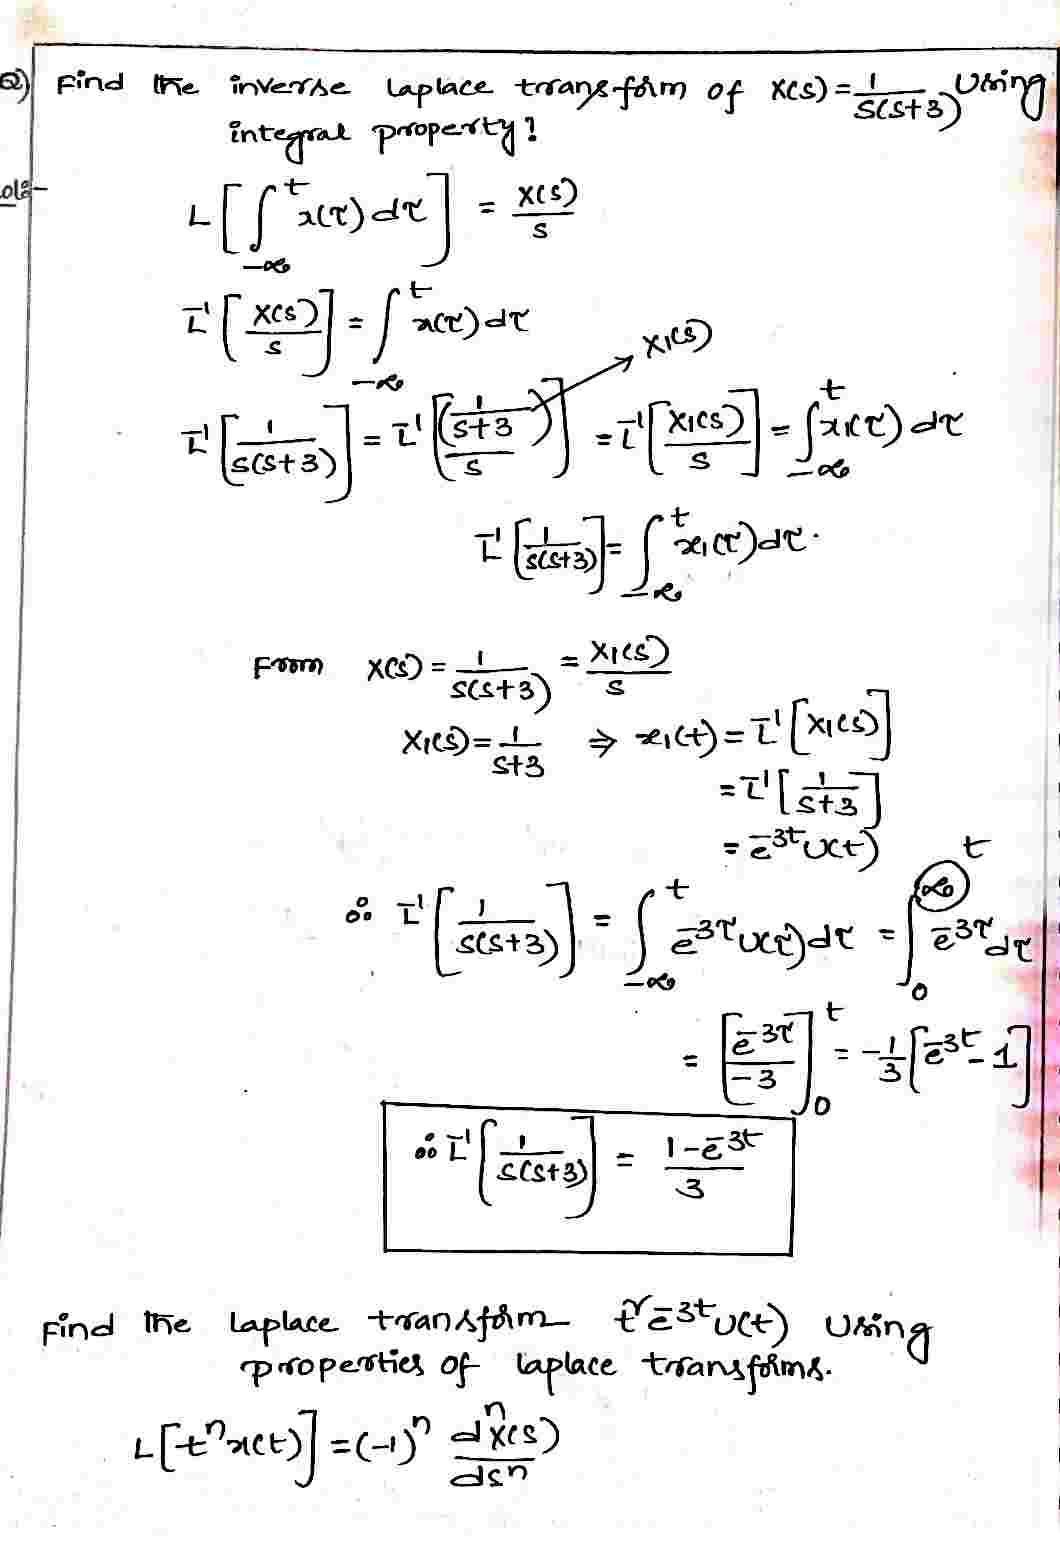 Q) Find the inverse Laplace transform of X(s) = 1/(s(s+3)) Using
integral property?
Sol:-
L[∫_{-∞}^{t} x(τ) dτ] = X(s)/s
L⁻¹[X(s)/s] = ∫_{-∞}^{t} x(τ) dτ
X₁(s)
L⁻¹[1/(s(s+3))] = L⁻¹[(1/(s+3))/s] = L⁻¹[X₁(s)/s] = ∫_{-∞}^{t} x₁(τ) dτ
L⁻¹[1/(s(s+3))] = ∫_{-∞}^{t} x₁(τ) dτ.
From X(s) = 1/(s(s+3)) = X₁(s)/s
X₁(s) = 1/(s+3) ⇒ x₁(t) = L⁻¹[X₁(s)]
= L⁻¹[1/(s+3)]
= e^{-3t} u(t)
∴ L⁻¹[1/(s(s+3))] = ∫_{-∞}^{t} e^{-3τ} u(τ) dτ = ∫_{0}^{∞ t} e^{-3τ} dτ
= [e^{-3τ}/-3]_{0}^{t} = -1/3 [e^{-3t} - 1]
∴ L⁻¹[1/(s(s+3))] = (1 - e^{-3t})/3
Find the Laplace transform t² e^{-3t} u(t) Using
properties of laplace transforms.
L[tⁿ x(t)] = (-1)ⁿ dⁿX(s)/dsⁿ